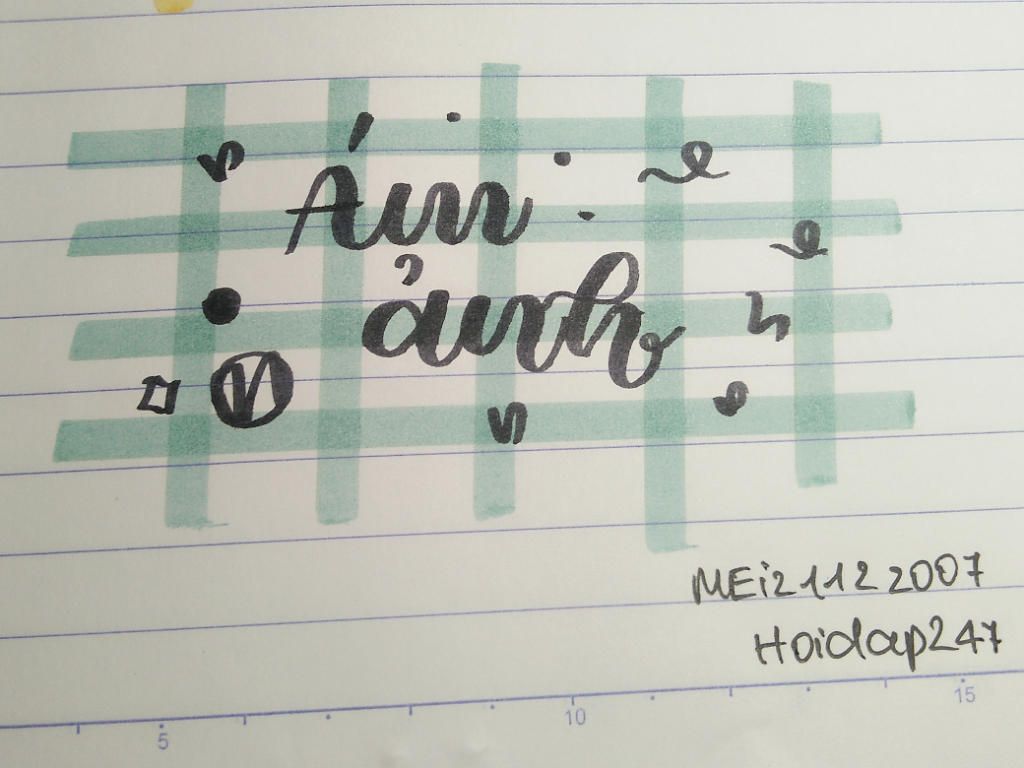 Ám
ảnh
MEi21122007
Hoidap247
5 10 15